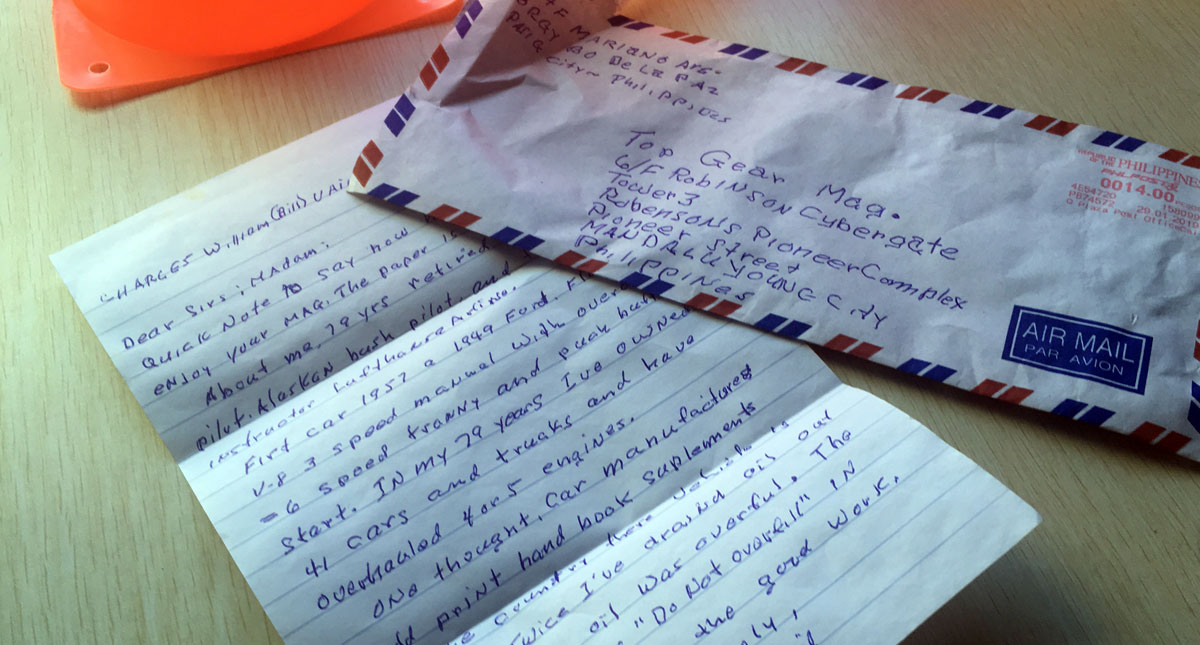 MARIANO Ave.
DE LA PAZ
City - Philippines
Top Gear Mag.
6/F RobiNSON Cybergate
Tower 3
Robensons Pioneer Complex
Pioneer Street
MANDALUYOUNG City
Philippines
REPUBLIC OF THE PHILIPPINES
PHILPOST
0014.00
AIR MAIL
PAR AVION
CHARGES William (Bill)
Dear Sirs; Madam:
Quick Note to say how
eNjoy your MAG. The Paper is
About me, 79 yrs retired
pilot, Alaskan bush pilot, and
instructor Lufthansa Airline.
First car 1957 a 1949 Ford. F
V-8 3 speed manual with over
= 6 speed tranny and push
start. IN my 79 years I've owned
41 cars and trucks and have
overhauled 4 or 5 engines.
ONe thought, car manufactures
print hand book suplements
country here
twice I've drained oil out
oil was overful. The
"Do Not overfill" IN
the good work.